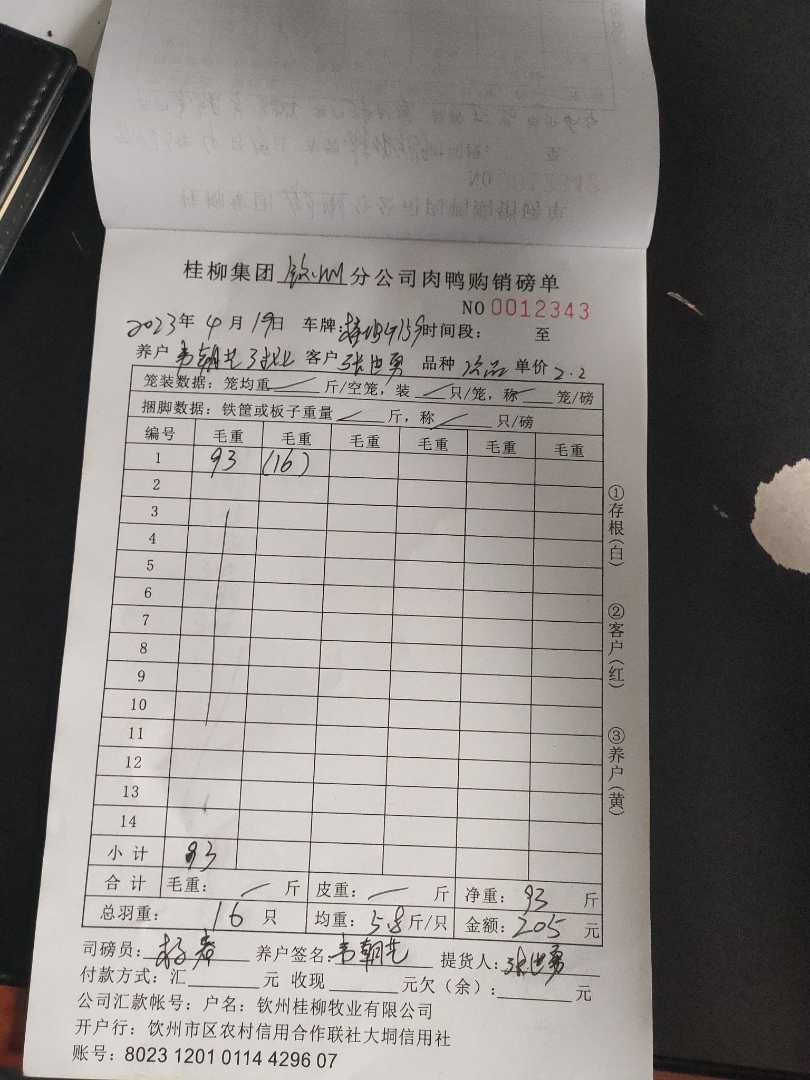 桂柳集团 钦州 分公司肉鸭购销磅单
NO 0012343
2023年 4月 19日 车牌: 时间段: 至
养户 韦朝艺 客户 张世勇 品种 次品 单价 2.2
笼装数据: 笼均重 斤/空笼, 装 只/笼, 称 笼/磅
捆脚数据: 铁筐或板子重量 斤, 称 只/磅
编号 毛重 毛重 毛重 毛重 毛重 毛重
1 93 (16)
2
3
4
5
6
7
8
9
10
11
12
13
14
小计 93
合计 毛重: 斤 皮重: 斤 净重: 93 斤
总羽重: 16 只 均重: 5.8 斤/只 金额: 205 元
司磅员: 养户签名: 韦朝艺 提货人: 张世勇
付款方式: 汇 元 收现 元欠(余): 元
公司汇款帐号: 户名: 钦州桂柳牧业有限公司
开户行: 饮州市区农村信用合作联社大垌信用社
账号: 8023 1201 0114 4296 07
①存根(白)
②客户(红)
③养户(黄)